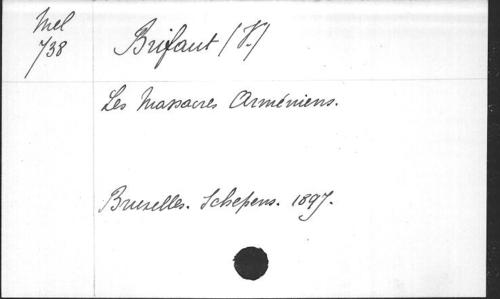 Mel
738
Brifaut (V.)
Les Massacres Arméniens.
Bruxelles. Schepens. 1897.